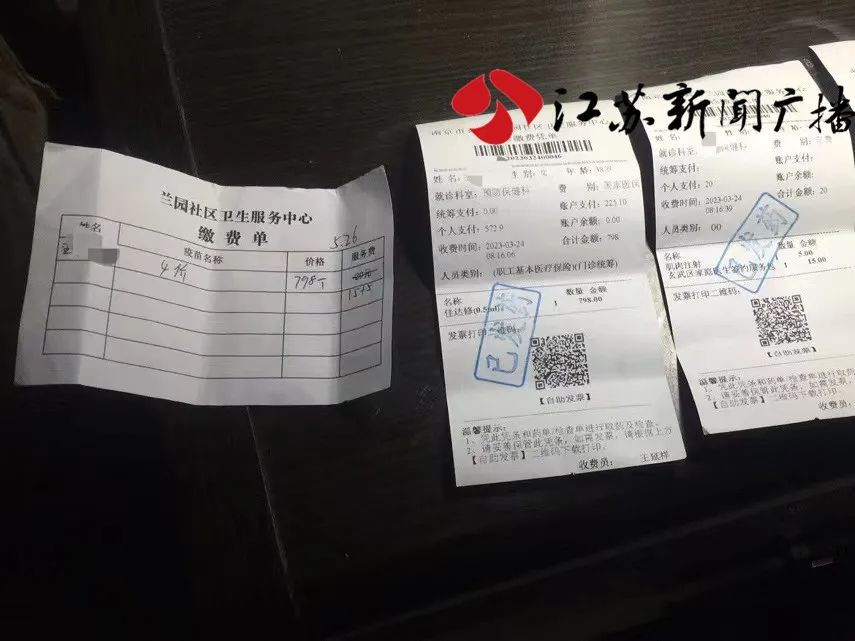 江苏新闻广播
兰园社区卫生服务中心
缴费单
5.26
姓名 疫苗名称 价格 服务费
4价 798-
15+5
缴费凭单
202303240046
姓名: 性别: 女 年龄: 38岁
就诊科室: 预防保健科 费别:
统筹支付: 0.00 账户支付: 225.10
个人支付: 572.9 账户余额: 0.00
收费时间: 2023-03-24 08:16:06 合计金额: 798
人员类别: (职工基本医疗保险)(门诊统筹)
名称 数量 金额
佳达修(0.5ml) 1 798.00
发票打印二维码:
已发药
【自助发票】
温馨提示:
1、凭此凭条和药单/检查单进行取药及检查。
2、请妥善保管此凭条,如需发票,请根据上方
【自助发票】二维码下载打印。
收费员: 王延祥
姓名:
就诊科室: 费别:
统筹支付: 账户支付:
个人支付: 20 账户余额:
收费时间: 2023-03-24 08:16:39 合计金额: 20
人员类别: 00
名称 数量 金额
肌肉注射 1 5.00
玄武区家庭医生签约服务包 1 15.00
发票打印二维码:
已发药
【自助发票】
温馨提示:
1、凭此凭条和药单/检查单进行取药
2、请妥善保管此凭条,如需发票,
【自助发票】二维码下载打印。
收费员: